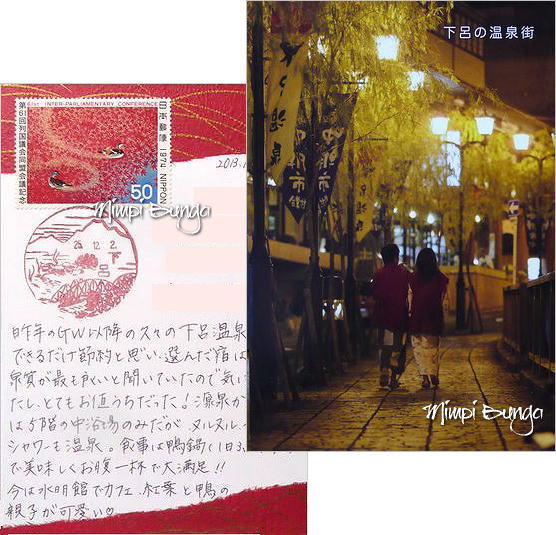 下呂の温泉街
温泉
Mimpi Bunga
61st INTER-PARLIAMENTARY CONFERENCE
第61回列国議会同盟会議記念
日本郵便 1974 NIPPON
50
2013.1
Mimpi Bunga
25.12.2
下呂
昨年のGW以降の久々の下呂温泉
できるだけ節約と思い選んだ宿は
泉質が最も良いと聞いていたので気に
たし、とてもお値うちだった!源泉か
は5階の中浴場のみだが、ヌルヌル、
シャワーも温泉。食事は鴨鍋(1日3
で美味しくお腹一杯で大満足!!
今は水明館でカフェ、紅葉と鴨の
親子が可愛い♡